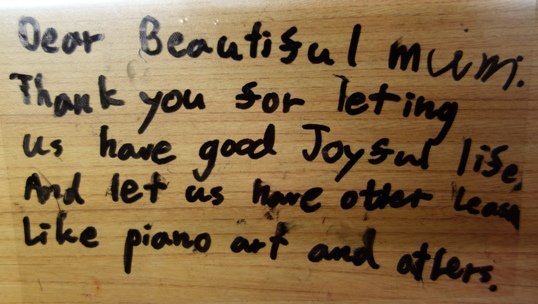 Dear Beautiful mum.
Thank you for leting
us have good Joyful life.
And let us have other lean
Like piano art and others.